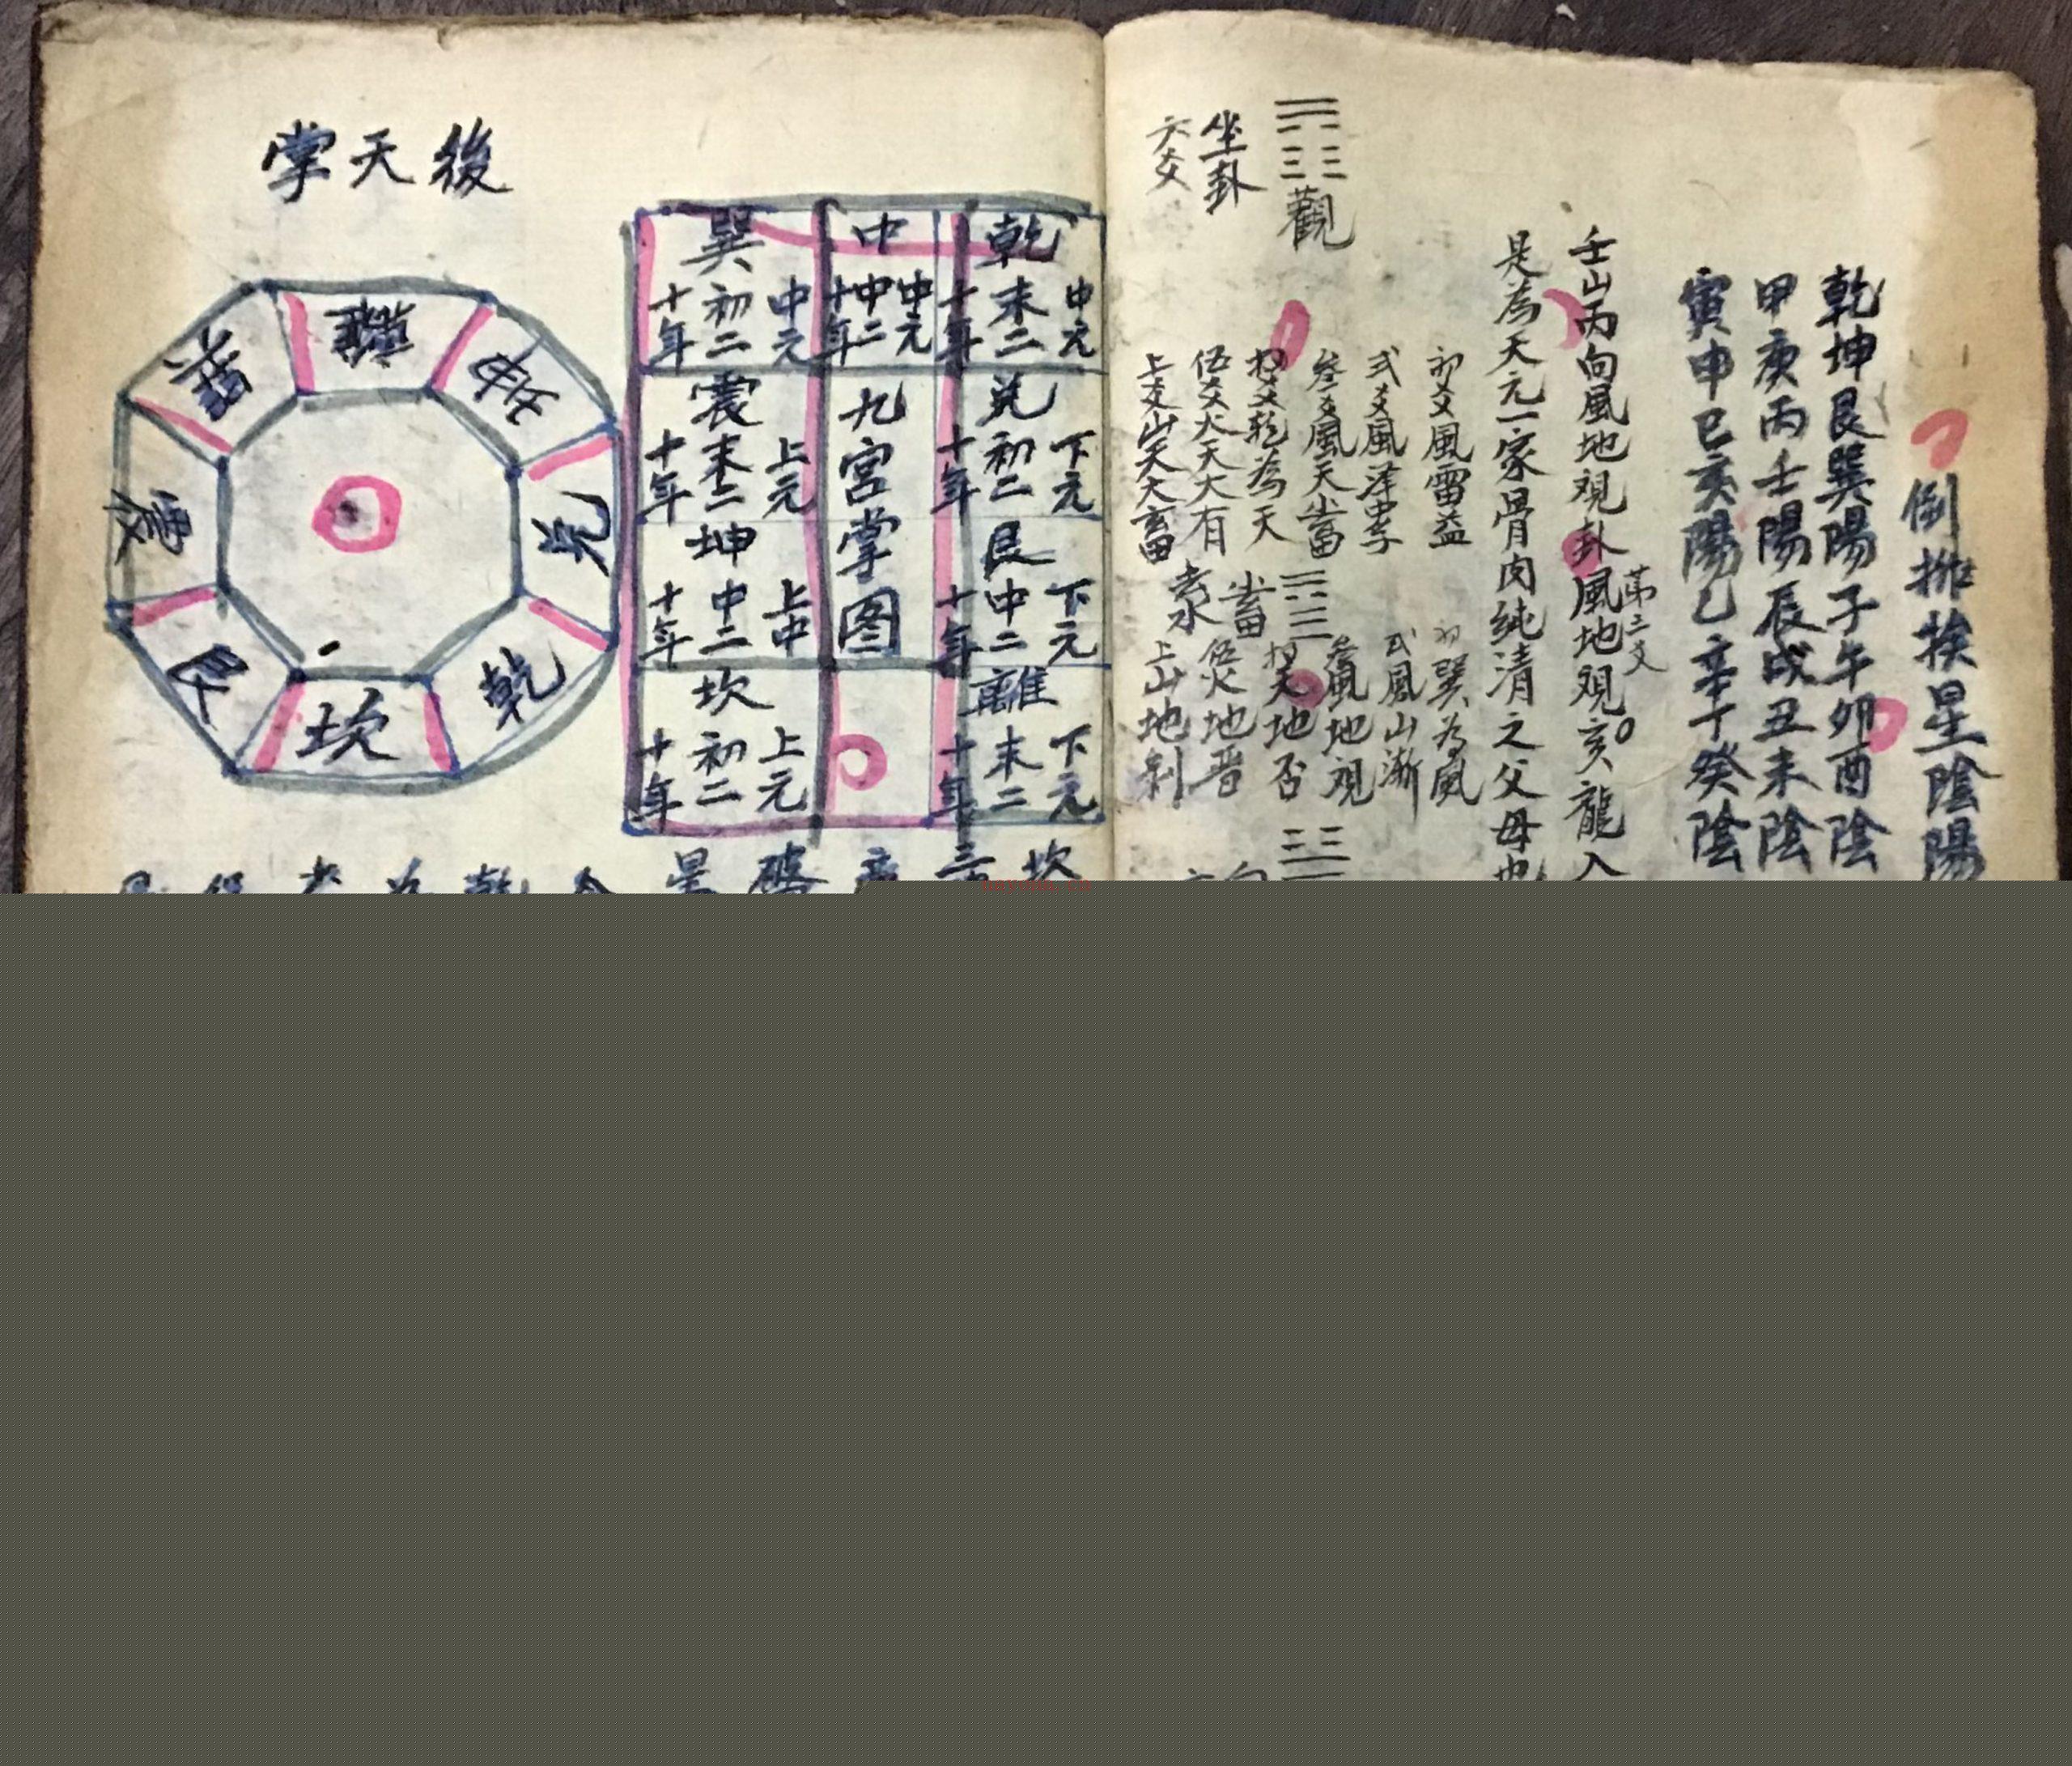 倒排挨星陰陽
乾坤艮巽陽子午卯酉陰
甲庚丙壬陽辰戌丑未陰
寅申巳亥陽乙辛丁癸陰
壬山丙向風地观卦風地观亥龍入
第二爻
是為天元一家骨肉純清之父母也
觀
坐卦
六爻
初爻風雷益
弍爻風泽中孚
叁爻風天小畜
乾為天
伍爻火天大有
上爻山天大畜
小畜
初巽為風
弍風山漸
叁風地观
天地否
伍火地晋
上山地剝
後天掌
離
兑
乾
坎
艮
震
乾
中元
末二
十年
中
中元
中二
十年
巽
中元
初二
十年
兑
下元
初二
十年
九宮掌图
震
上元
末二
十年
艮
下元
中二
十年
坤
上中
中二
十年
離
下元
末二
十年
坎
上元
初二
十年